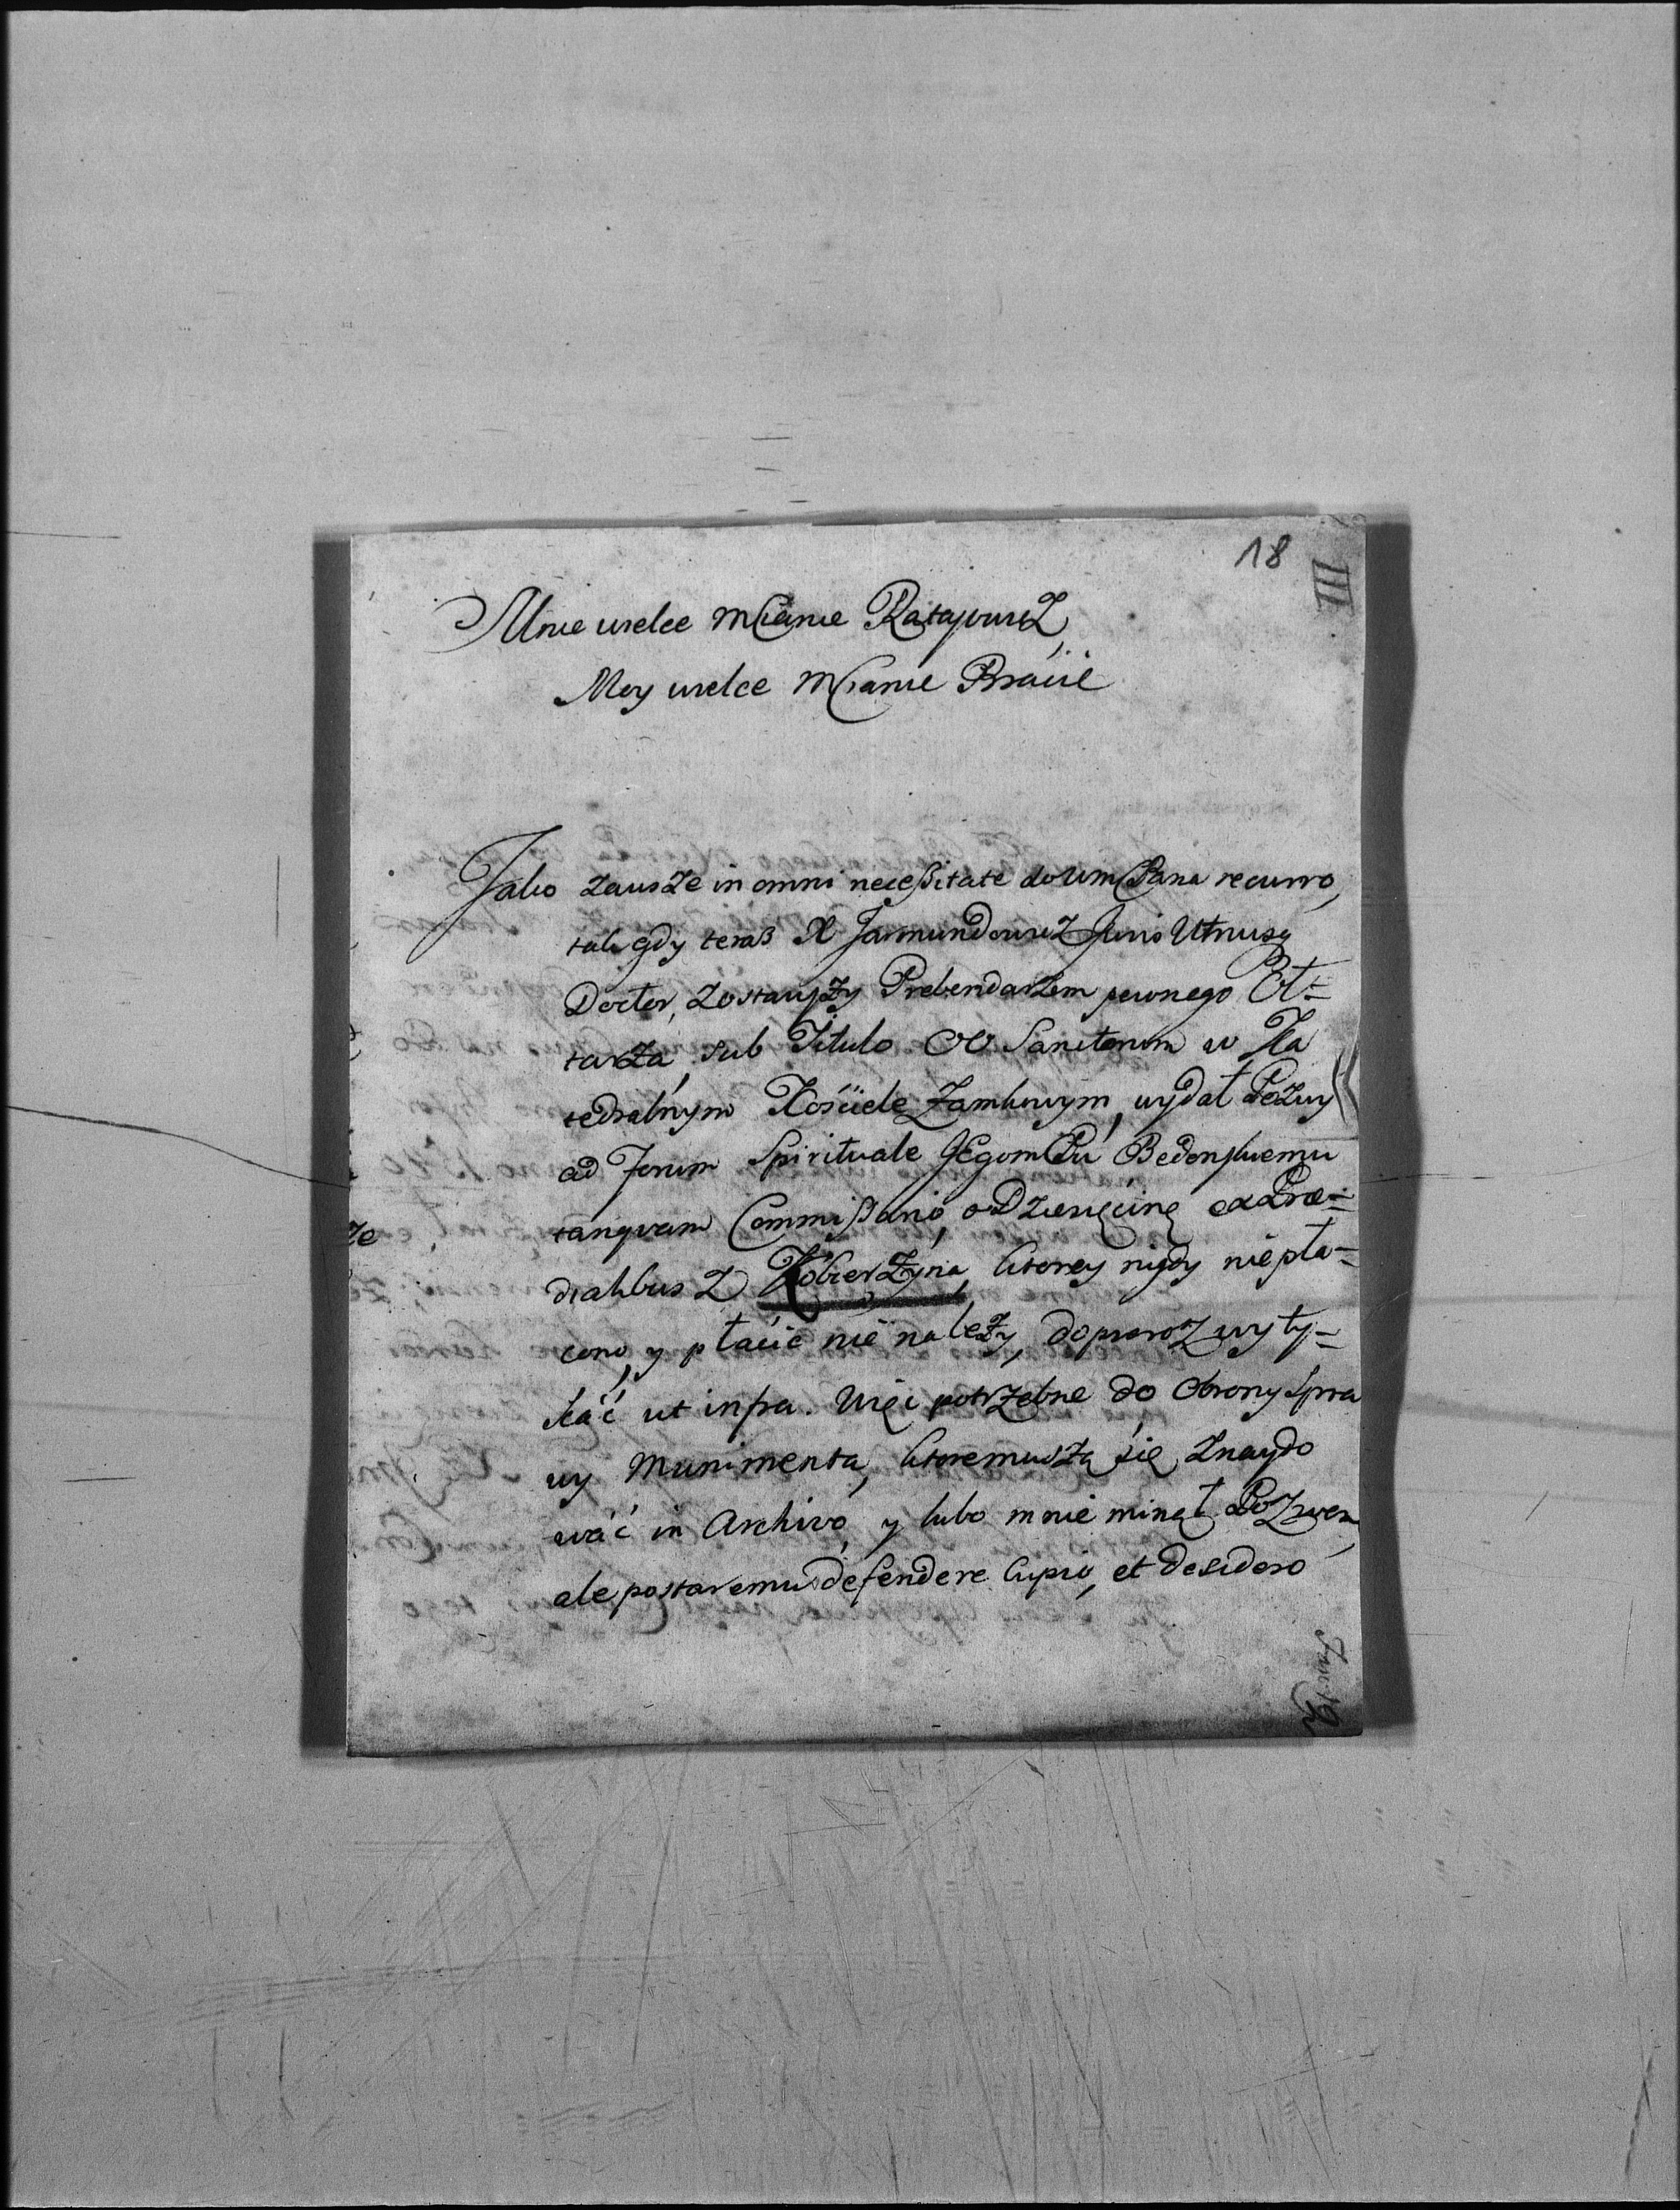 18
III
Mnie wielce MCianie Ratajowicz
Moy wielce MCianie Bracie
Jako zawsze in omni necessitate do WmCPana recurro,
tak gdy teraß X Jarmundowicz Juris Utriusq
Doctor, zostawszy Prebendarzem pewnego Ołt=
tarza, sub Titulo OO Sanctorum w Ka
tedralnym Kościele Zamkowym, wydał Pozwy
ad Forum Spirituale JEgomCPu Bedonskiemu
tanquam Commißario, o Dziesięcinę ex Præ=
dialibus z Kobierzyna, ktorey nigdy niepła=
cono, y płacić nie należy, doprero z wyty=
kać ut infra. Więc potrzebne do Obrony Spra
wy Munimenta, ktoremuszą się znaydo
wać in Archivo, y lubo mnie minął Pozwem,
ale postaremu defendere cupio, et desidero